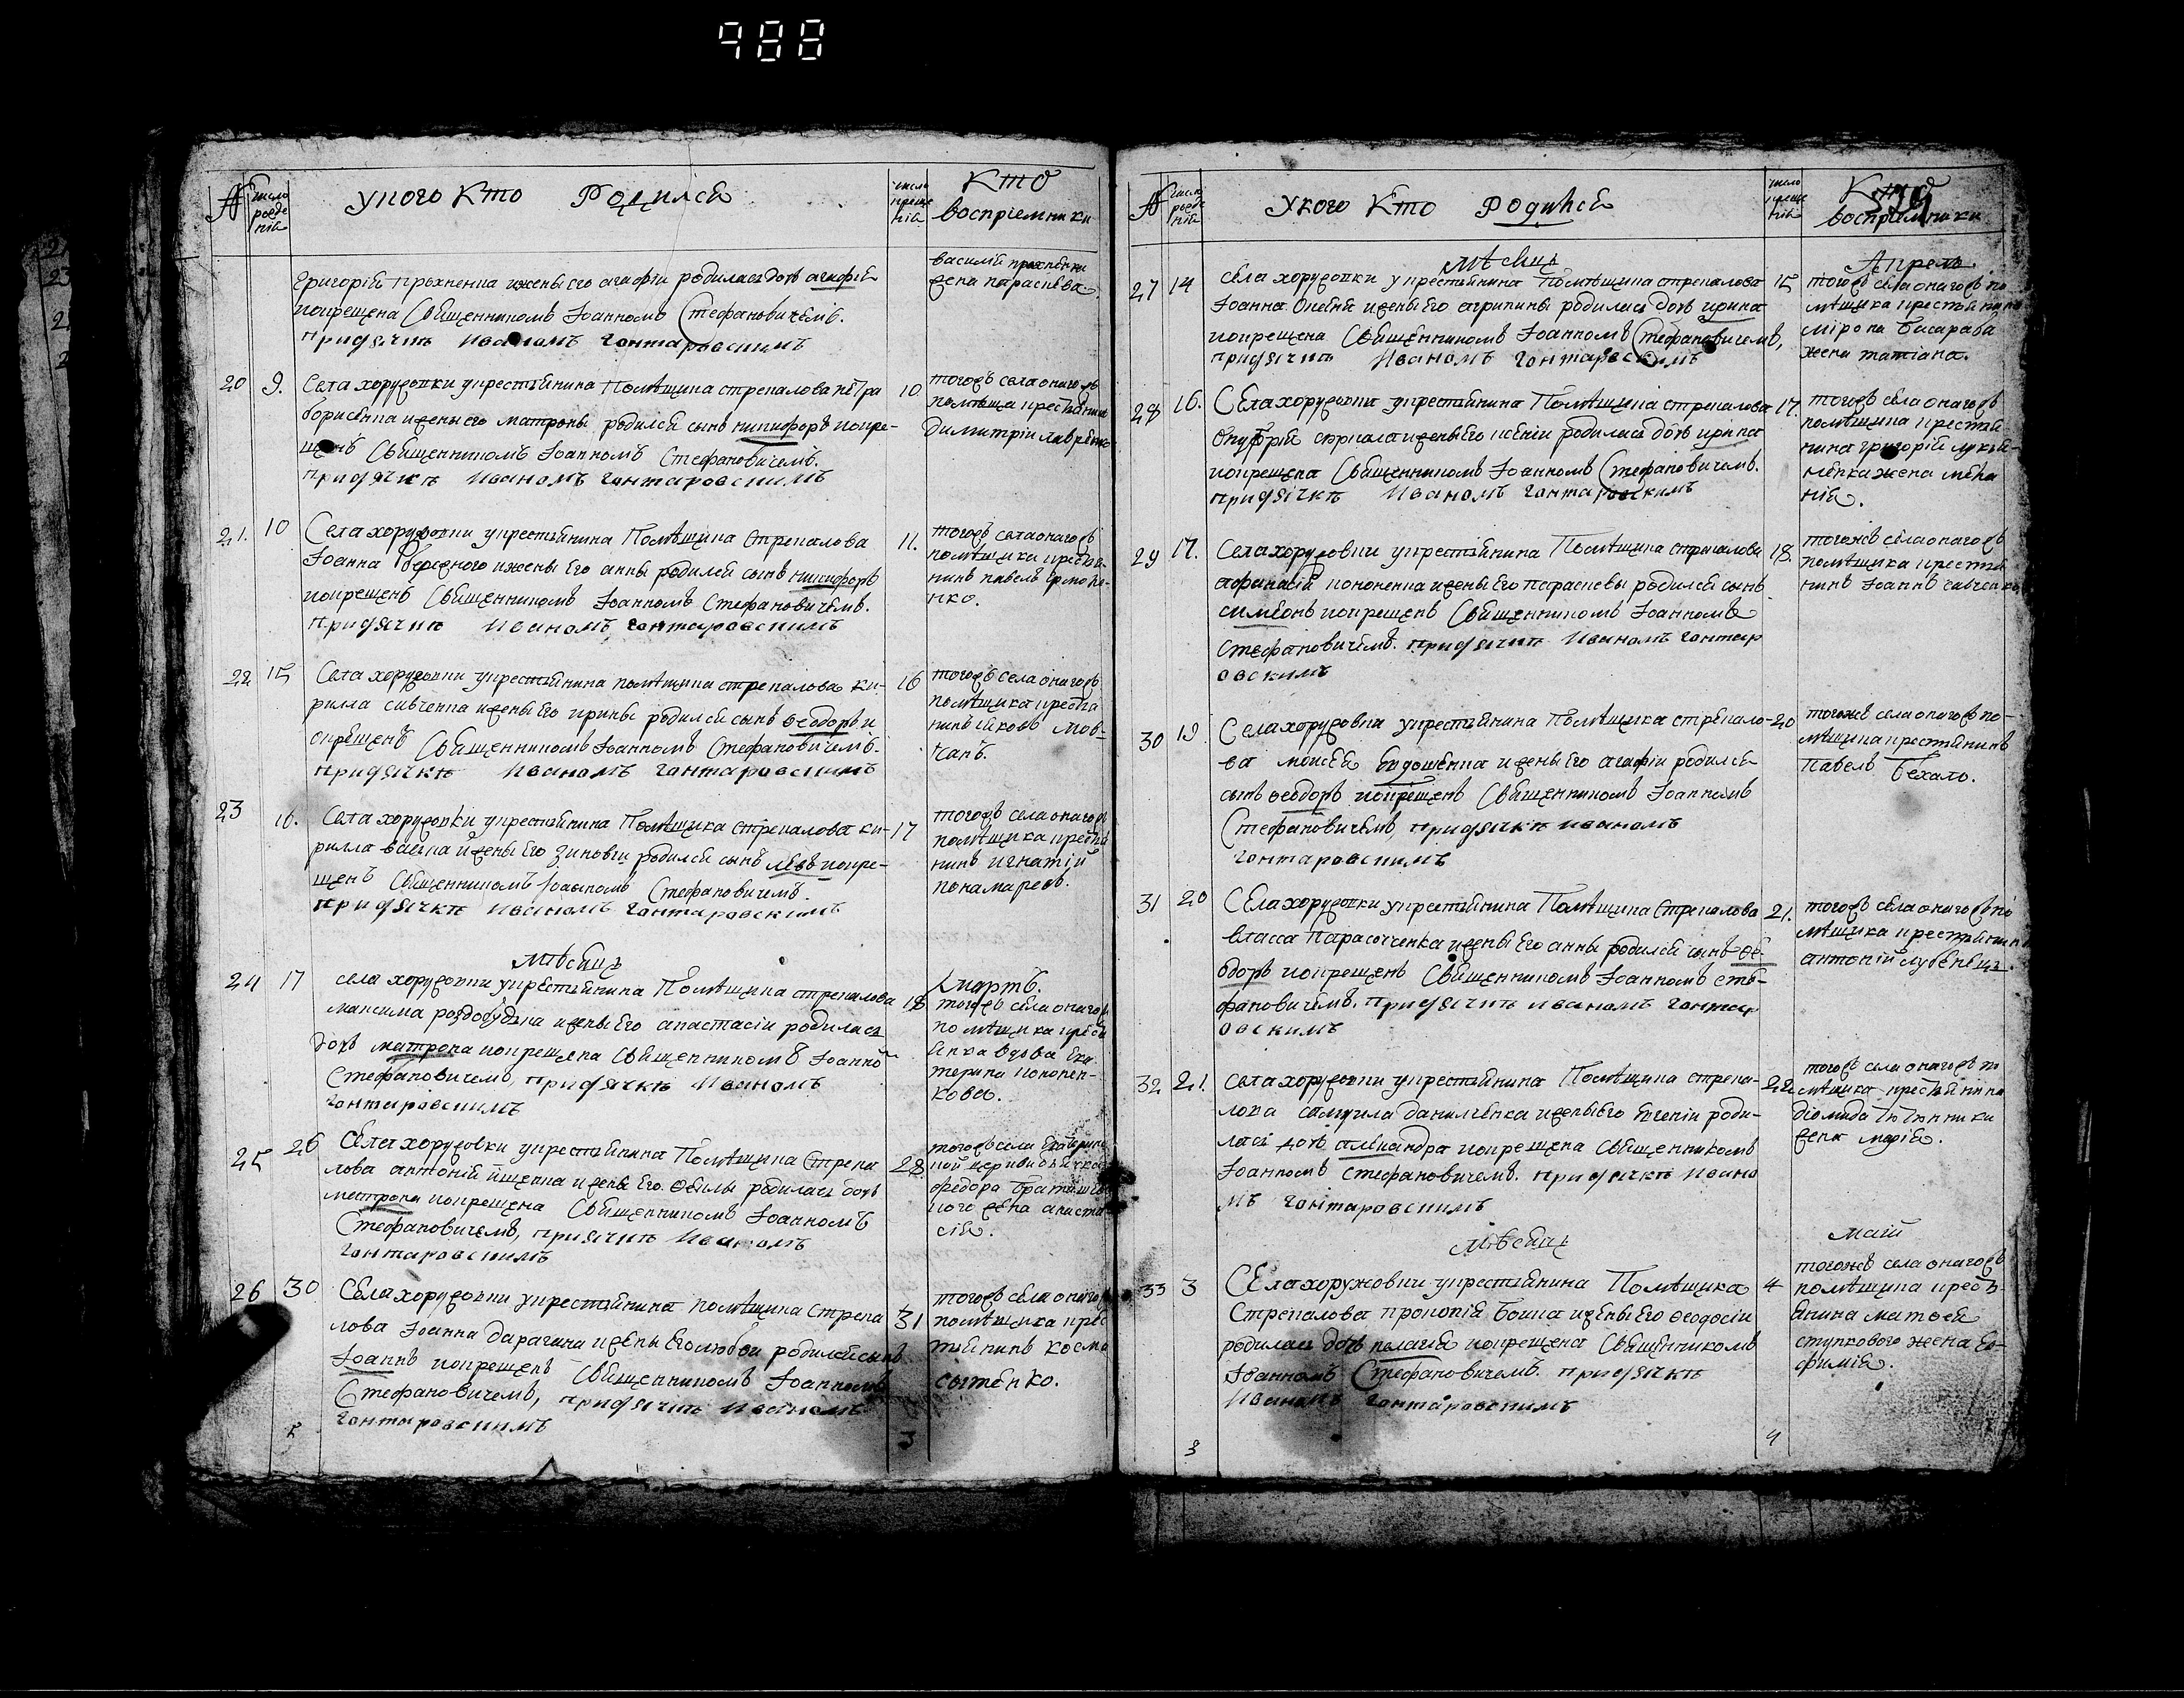 988
№ число рожде ній
у кого кто Родился
число креще ній
Кто
воспріемники
Григорій прохненка и жены его агафіи родилась дочь агафія
крещена Священникомъ Іоанномъ Стефановичемъ.
при дячкѣ Иваномъ Гонтаровскимъ
василій
жена параскева.
20 9. Села хоружовки у крестьянина Помѣщика стрекалова петра
борисенка и жены его матроны родился сынъ никифоръ и окре-
щенъ Священникомъ Іоанномъ Стефановичемъ.
при дячкѣ Иваномъ Гонтаровскимъ
10 тогожъ села оногожъ
помѣща крестьянинъ
димитрій
21. 10 Села хоружовки у крестьянина Помѣщика Стрекалова
Іоанна Бережного и жены его анны родился сынъ никифоръ
и окрещенъ Священникомъ Іоанномъ Стефановичемъ.
при дячкѣ Иваномъ Гонтаровскимъ
11. тогожъ села оногожъ
помѣщика крестья-
нинъ павелъ ермоле-
нко.
22 15 Села хоружовки у крестьянина помѣщика стрекалова ки-
рилла сивченка и жены его ирины родился сынъ ѳеодоръ и
окрещенъ Священникомъ Іоанномъ Стефановичемъ.
при дячкѣ Иваномъ Гонтаровскимъ
16 тогожъ села оногожъ
помѣщика крестья
нинъ яковъ мов-
чанъ.
23 16. Села хоружовки у крестьянина Помѣщика стрекалова ки-
рилла и жены его зиновіи родился сынъ левъ и окре-
щенъ Священникомъ Іоанномъ Стефановичемъ.
при дячкѣ Иваномъ Гонтаровскимъ
17 тогожъ села оногожъ
помѣщика крестья
нинъ игнатій
понамаревъ.
Мѣсяцъ
Мартъ.
24 17 села хоружовки у крестьянина Помѣщика стрекалова
максима роздобудка и жены его анастасіи родилась
дочь матрона и окрещена Священникомъ Іоанно
Стефановичемъ, при дячкѣ Иваномъ
Гонтаровскимъ
18 тогожъ села оногожъ
помѣщика кресть
янка вдова ека
терина кононен-
кова.
25 26 Села хоружовки у крестьянина Помѣщика Стрека
лова антоній и жены его родилась дочь
матрона и окрещена Священникомъ Іоанномъ
Стефановичемъ, при дячкѣ Иваномъ
Гонтаровскимъ
28 тогожъ села
ной церкви дячка
федора
ного жена анаста
сія.
26 30 Села хоружовки у крестьянина помѣщика Стрека
лова Іоанна дарагана и жены его любви родился сынъ
Іоаннъ и окрещенъ Священникомъ Іоанномъ
Стефановичемъ, при дячкѣ Иваномъ
Гонтаровскимъ
31 тогожъ села оногожъ
помѣщика крес
тьянинъ косма
сытенко.
3
№ число рожде ній
У кого Кто Родился
число креще ній
Кто
воспріемники
Мѣсяцъ
Апрель.
27 14 села хоружовки у крестьянина Помѣщика стрекалова
Іоанна и жены его агрипины родилась дочь ирина
и окрещена Священникомъ Іоанномъ Стефановичемъ,
при дячкѣ Иваномъ Гонтаровскимъ
15 тогожъ села оногожъ по
мѣщика крестьянина
мірона Бисараба
жена татіана.
28 16. Села хоружовки у крестьянина Помѣщика стрекалова
Онуфрій и жены его ксеніи родилась дочь ирина
и окрещена Священникомъ Іоанномъ Стефановичемъ.
при дячкѣ Иваномъ Гонтаровскимъ
17. тогожъ села оногожъ
помѣщика крестья
нина григорій лукья-
ненка жена мела
нія.
29 17. Села хоружовки у крестьянина Помѣщика стрекалова
афанасій кононенка и жены его параскевы родился сынъ
симеонъ и окрещенъ Священникомъ Іоанномъ
Стефановичемъ. при дячкѣ Иваномъ Гонтар
овскимъ
18. тогожъ села оногожъ
помѣщика крестья
нинъ Іоаннъ савченко
30 19 Села хоружовки у крестьянина Помѣщика стрекало-
ва моисея и жены его агафіи родился
сынъ ѳеодоръ и окрещенъ Священникомъ Іоанномъ
Стефановичемъ, при дячкѣ Иваномъ
Гонтаровскимъ
20 тогожъ села оногожъ по-
мѣщика крестьянинъ
Павелъ Бехало.
31 20 Села хоружовки у крестьянина Помѣщика Стрекалова
власса Парасоченка и жены его анны родился сынъ ѳе-
одоръ и окрещенъ Священникомъ Іоанномъ Сте-
фановичемъ. при дячкѣ Иваномъ Гонтар
овскимъ
21. тогожъ села оногожъ по
мѣщика крестьянинъ
антоній лубенецъ.
32 21. села хоружовки у крестьянина Помѣщика стрека-
лова самуила данилченка и жены его евгеніи роди-
лась дочь александра и окрещена Священникомъ
Іоанномъ Стефановичемъ. при дячкѣ Ивано
мъ Гонтаровскимъ
22 тогожъ села оногожъ по
мѣщика крестьянина
діомида
жена марія.
Мѣсяцъ
Маій
33 3 Села хоружовки у крестьянина Помѣщика
Стрекалова прокопія Боина и жены его ѳеодосіи
родилась дочь пелагія и окрещена Священникомъ
Іоанномъ Стефановичемъ. при дячкѣ
Иваномъ Гонтаровскимъ
4 тогожъ села оногожъ
помѣщика кресть-
янина матвея
ступкового жена ев-
фимія.
3
4